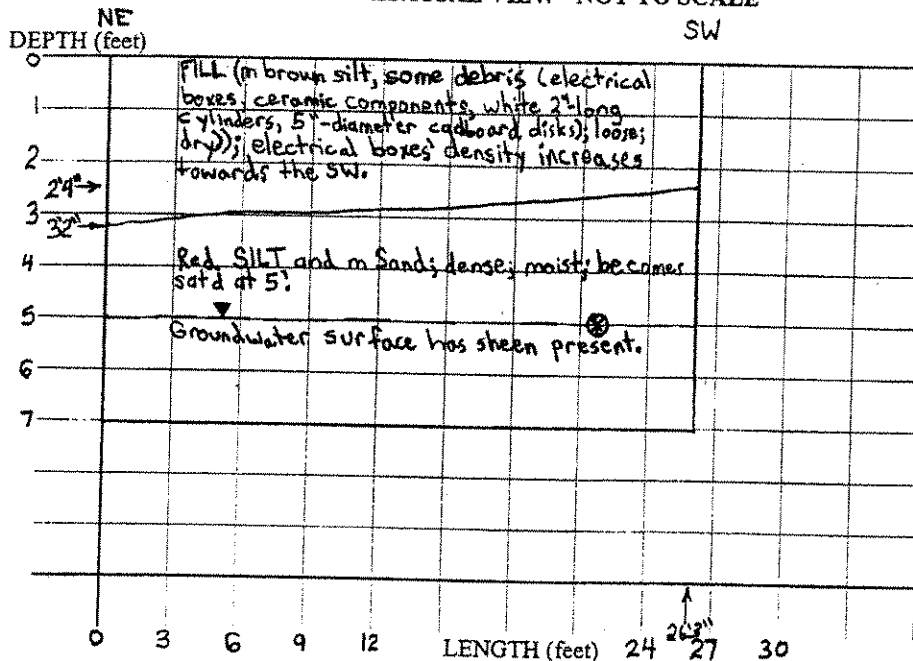 VIEW - NOT TO SCALE
NE
SW
DEPTH (feet)
0
FILL (m brown silt, some debris (electrical
boxes, ceramic components, white 2"-long
1
cylinders, 5"-diameter cadboard disks); loose;
dry)); electrical boxes' density increases
2
towards the SW.
2'4"
3
3'2"
4
Red SILT and m Sand; dense; moist; becomes
sat'd at 5'.
5
Groundwater surface has sheen present.
6
7
0 3 6 9 12 LENGTH (feet) 24 27 30